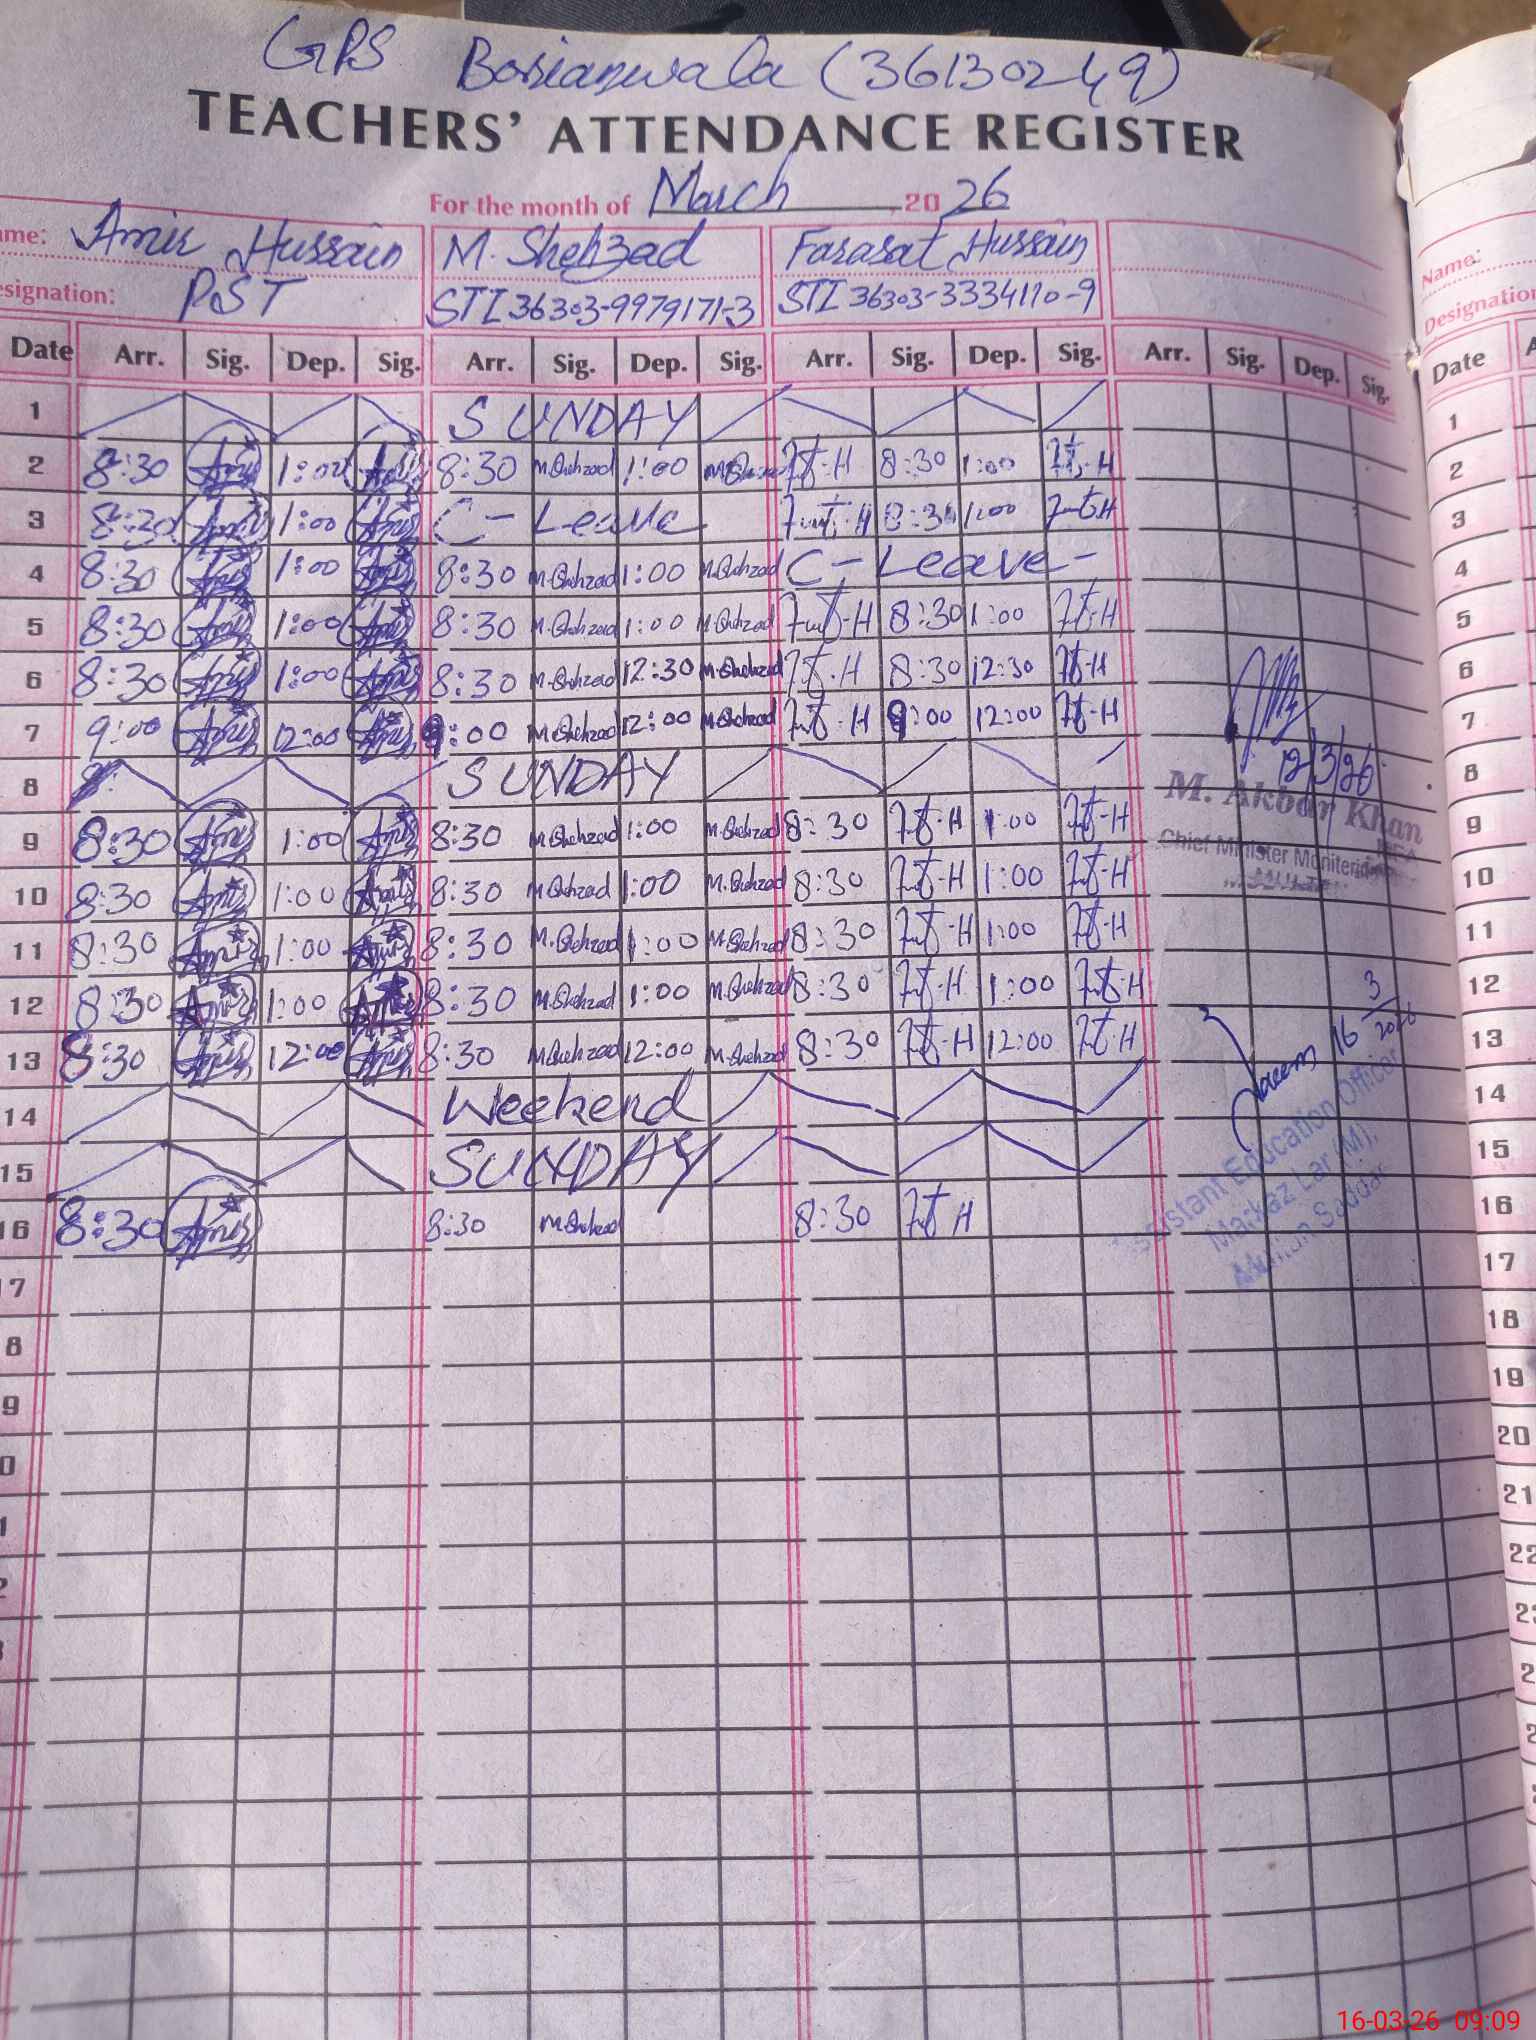 GPS Bosianwala (36130249)
TEACHERS' ATTENDANCE REGISTER
For the month of March 2026
ame: Amir Hussain M. Shehzad Farasat Hussain
esignation: PST STI 36303-9979171-3 STI 36303-3334110-9
Date Arr. Sig. Dep. Sig. Arr. Sig. Dep. Sig. Arr. Sig. Dep. Sig. Arr. Sig. Dep. Sig.
1 SUNDAY
2 8:30 Amir 1:00 Amir 8:30 M.Shehzad 1:00 M.Shehzad 8:30 1:00
3 8:30 Amir 1:00 Amir C-Leave 8:30 1:00
4 8:30 Amir 1:00 Amir 8:30 M.Shehzad 1:00 M.Shehzad C-Leave-
5 8:30 Amir 1:00 Amir 8:30 M.Shehzad 1:00 M.Shehzad 8:30 1:00
6 8:30 Amir 1:00 Amir 8:30 M.Shehzad 12:30 M.Shehzad 8:30 12:30
7 9:00 Amir 12:00 Amir 9:00 M.Shehzad 12:00 M.Shehzad 9:00 12:00
8 SUNDAY
12/3/26
M. Akbar Khan
9 8:30 Amir 1:00 Amir 8:30 M.Shehzad 1:00 M.Shehzad 8:30 1:00
Chief Minister Monitering
10 8:30 Amir 1:00 Amir 8:30 M.Shehzad 1:00 M.Shehzad 8:30 1:00
11 8:30 Amir 1:00 Amir 8:30 M.Shehzad 1:00 M.Shehzad 8:30 1:00
12 8:30 Amir 1:00 Amir 8:30 M.Shehzad 1:00 M.Shehzad 8:30 1:00
13 8:30 Amir 12:00 Amir 8:30 M.Shehzad 12:00 M.Shehzad 8:30 12:00
16 3/2026
14 Weekend
15 SUNDAY
16 8:30 Amir 8:30 M.Shehzad 8:30
sistant Education Officer
Markaz Lar (M),
Multan Saddar
7
8
9
0
1
2
Name:
Designation
Date A
1
2
3
4
5
6
7
8
9
10
11
12
13
14
15
16
17
18
19
20
21
22
16-03-26 09:09